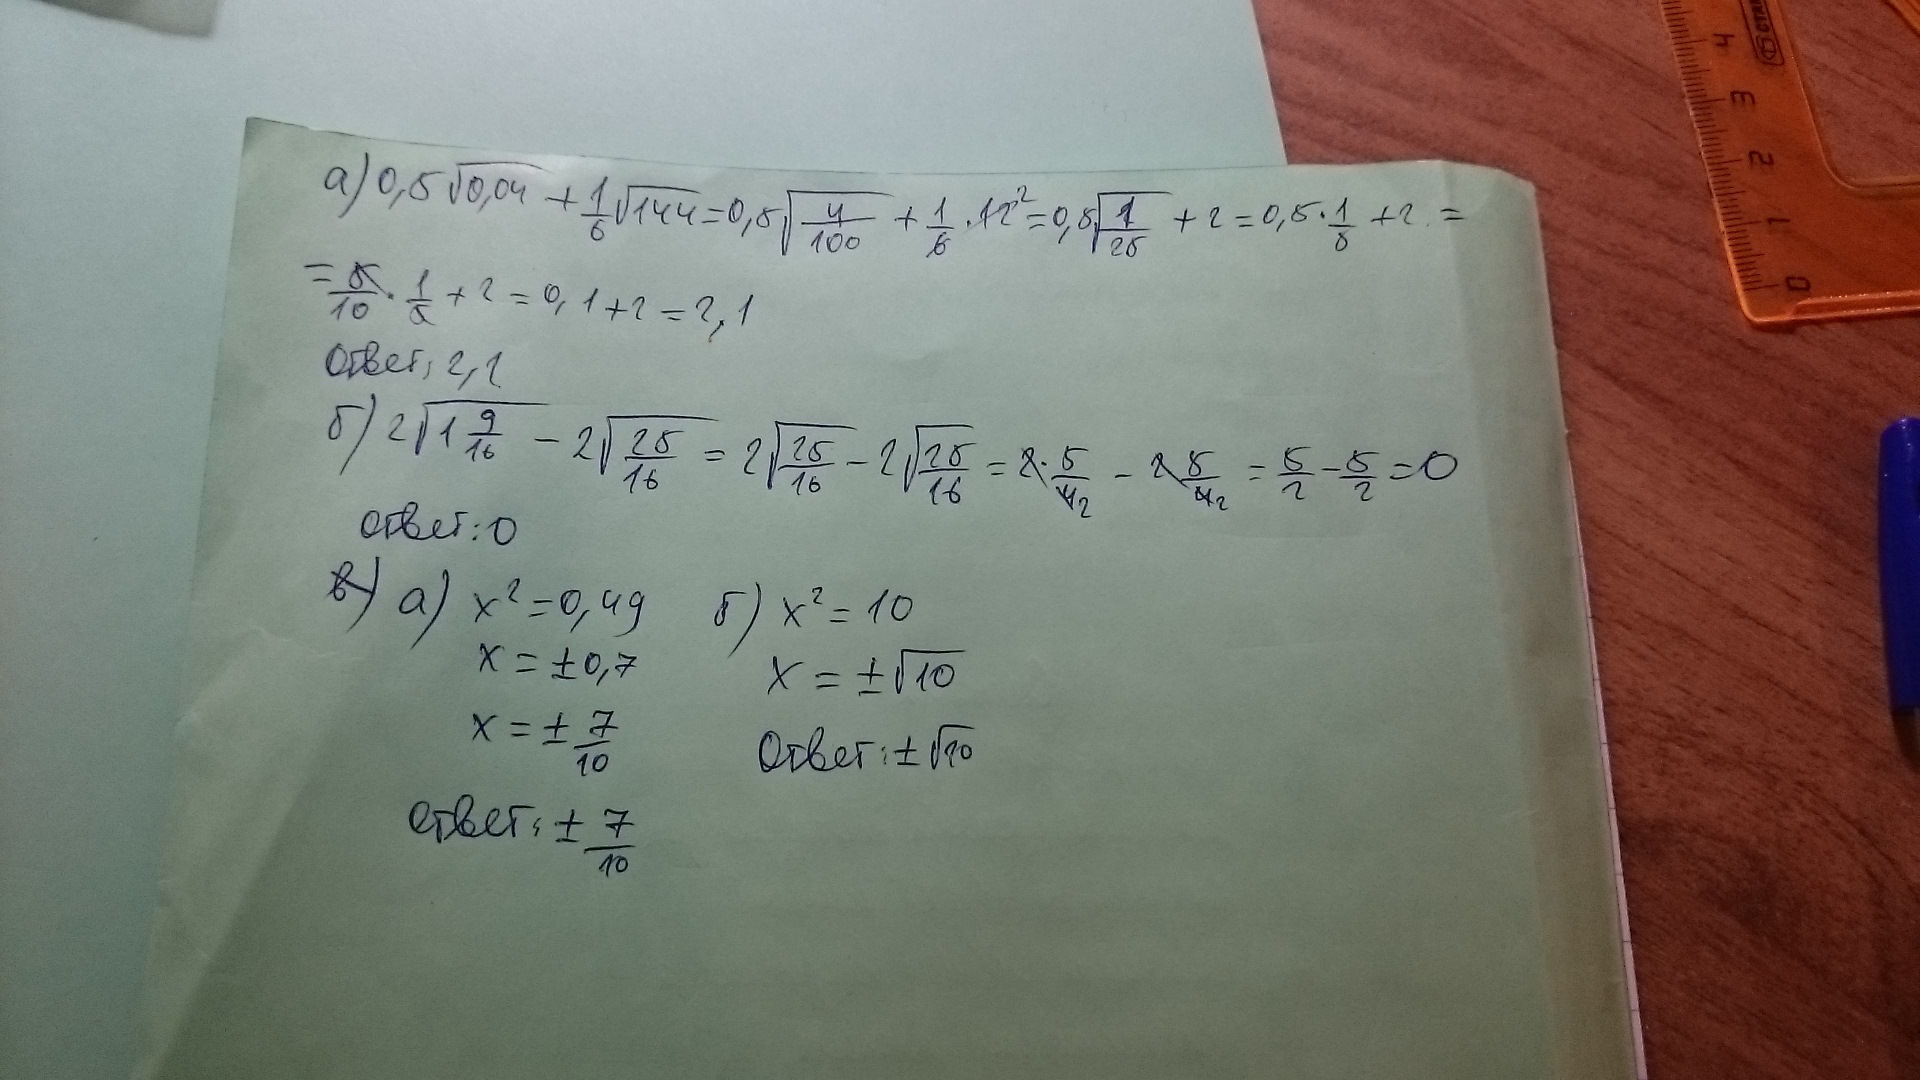 а) 0,5√0,04 + 1/6 √144 = 0,5√4/100 + 1/6 · 12² = 0,5√1/25 + 2 = 0,5 · 1/5 + 2 =
= 5/10 · 1/5 + 2 = 0,1 + 2 = 2,1
Ответ: 2,1
б) 2√1 9/16 - 2√25/16 = 2√25/16 - 2√25/16 = 2 · 5/4 2 - 2 5/4 2 = 5/2 - 5/2 = 0
Ответ: 0
в) а) x² = 0,49 б) x² = 10
x = ±0,7 x = ±√10
x = ± 7/10 Ответ: ±√10
Ответ: ± 7/10
4 3 2 1 0